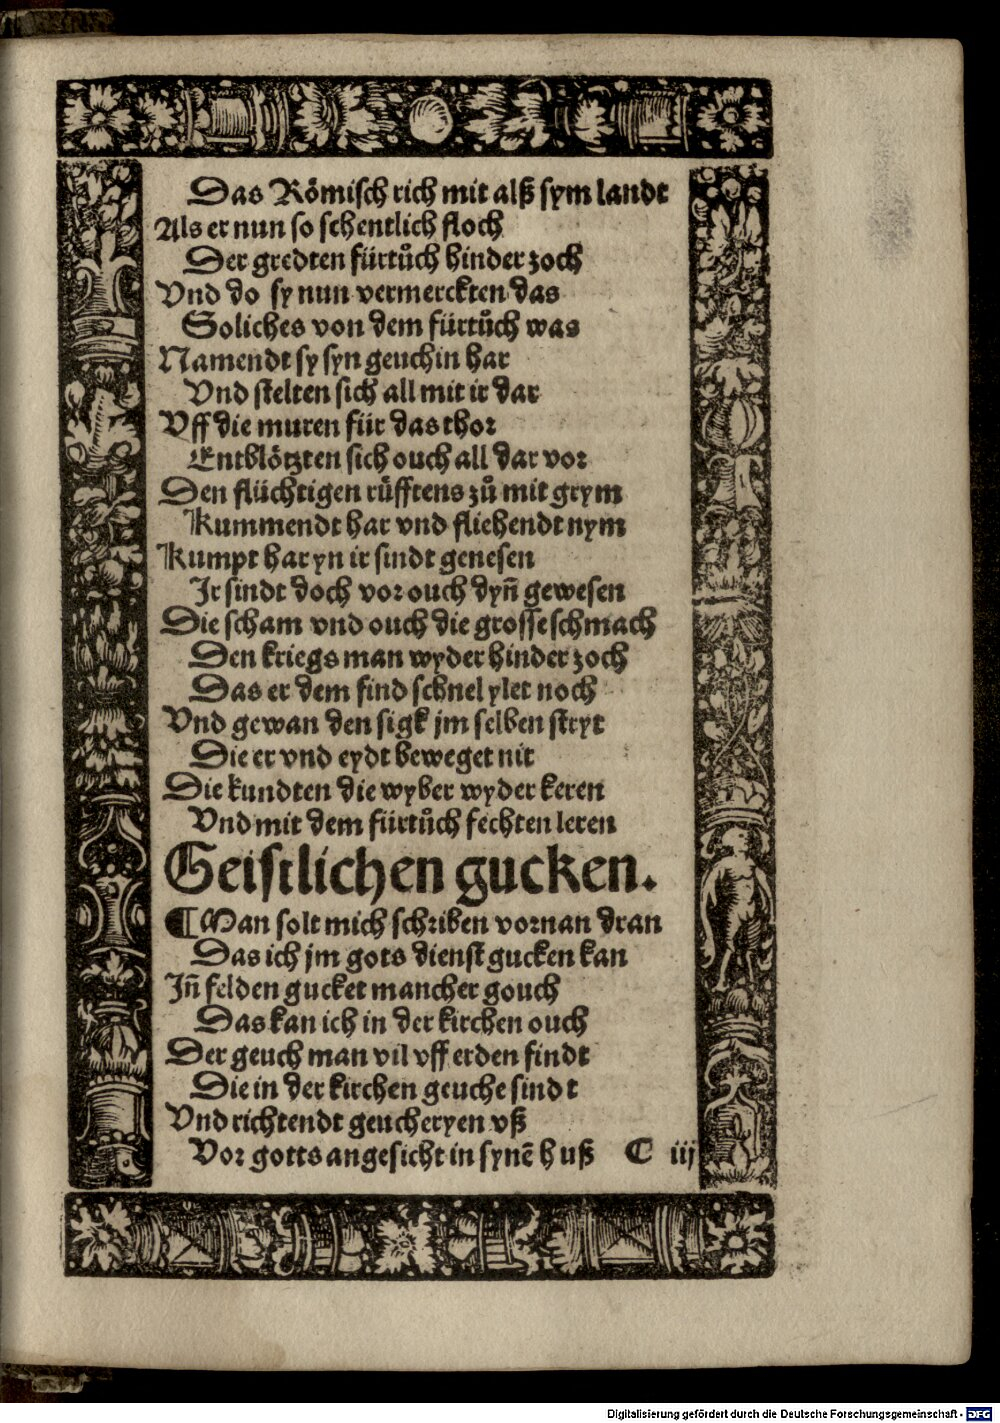 Das Römisch rich mit alß sym landt
Als er nun so schentlich floch
Der gredten fürtůch hinder zoch
Vnd do sy nun vermerckten das
Soliches von dem fürtůch was
Namendt sy syn geuchin har
Vnd stelten sich all mit ir dar
Vff die muren für das thor
Entblötzten sich ouch all dar vor
Den flüchtigen rüfftens zů mit grym
Kummendt har vnd fliehendt nym
Kumpt har yn ir sindt genesen
Ir sindt doch vor ouch dyn̄ gewesen
Die scham vnd ouch die grosse schmach
Den kriegs man wyder hinder zoch
Das er dem find schnel ylet noch
Vnd gewan den sigk jm selben stryt
Die er vnd eydt beweget nit
Die kundten die wyber wyder keren
Vnd mit dem fürtůch fechten leren
Geistlichen gucken.
¶ Man solt mich schriben vornan dran
Das ich jm gots dienst gucken kan
Jn̄ felden gucket mancher gouch
Das kan ich in der kirchen ouch
Der geuch man vil vff erden findt
Die in der kirchen geuche sindt
Vnd richtendt geucheryen vß
Vor gotts angesicht in synē huß C iij
Digitalisierung gefördert durch die Deutsche Forschungsgemeinschaft - DFG